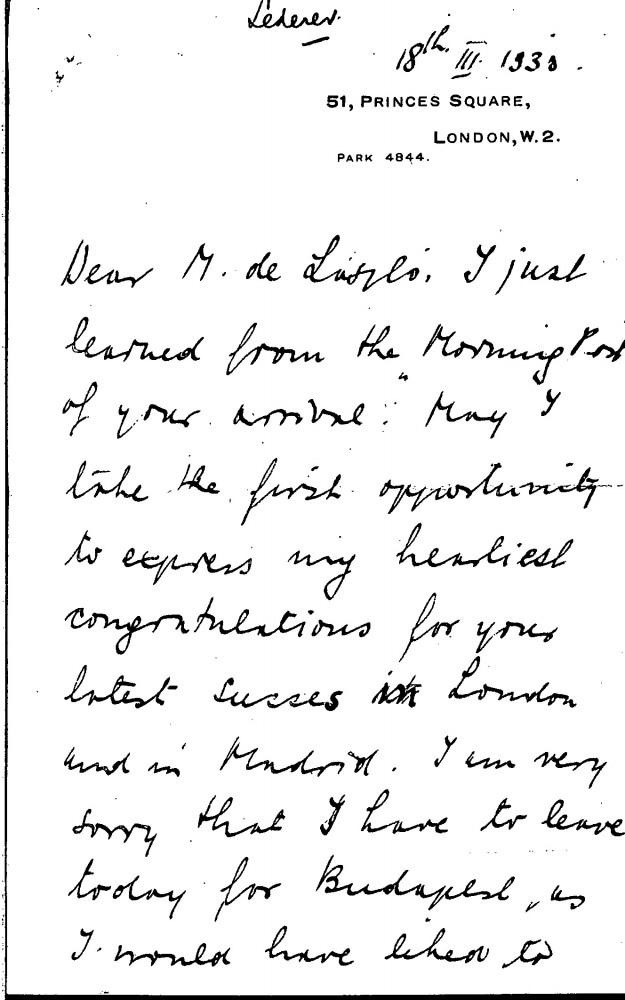 Lederer.
18th III. 1933.
51, PRINCES SQUARE,
LONDON, W. 2.
PARK 4844.
Dear M. de László. I just
learned from the "Morning Post"
of your arrival. May I
take the first opportunity
to express my heartiest
congratulations for your
latest succes in London
and in Madrid. I am very
sorry that I have to leave
today for Budapest, as
I would have liked to